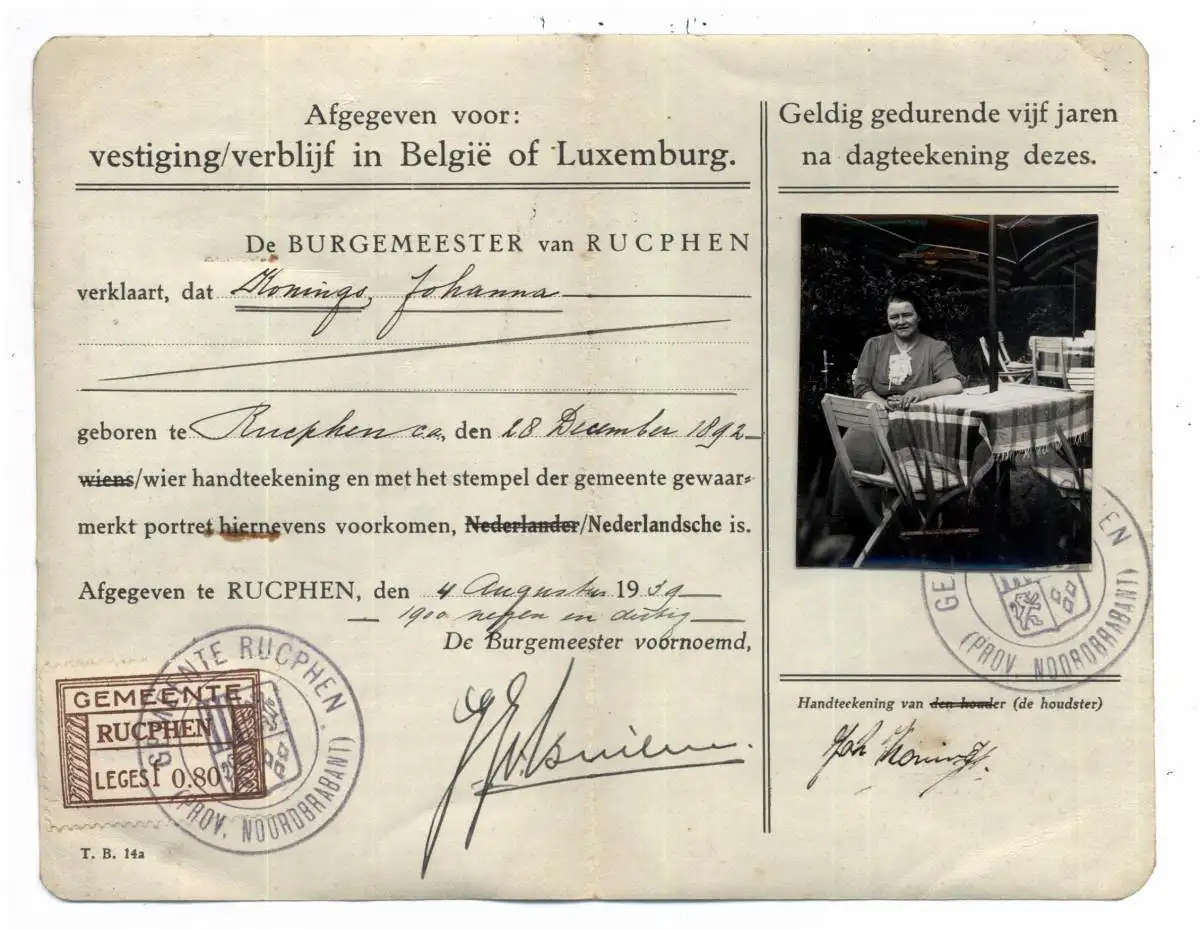 Afgegeven voor:
vestiging/verblijf in België of Luxemburg.
De BURGEMEESTER van RUCPHEN
verklaart, dat Konings, Johanna
geboren te Rucphen ca, den 28 December 1892
wiens/wier handteekening en met het stempel der gemeente gewaar=
merkt portret hiernevens voorkomen, Nederlander/Nederlandsche is.
Afgegeven te RUCPHEN, den 4 Augustus 1939
1900 negen en dertig
De Burgemeester voornoemd,
GEMEENTE RUCPHEN
(PROV. NOORDBRABANT)
GEMEENTE
RUCPHEN
LEGES f 0.80
T. B. 14a
Geldig gedurende vijf jaren
na dagteekening dezes.
(PROV. NOORDBRABANT)
Handteekening van den houder (de houdster)
Joh Konings.